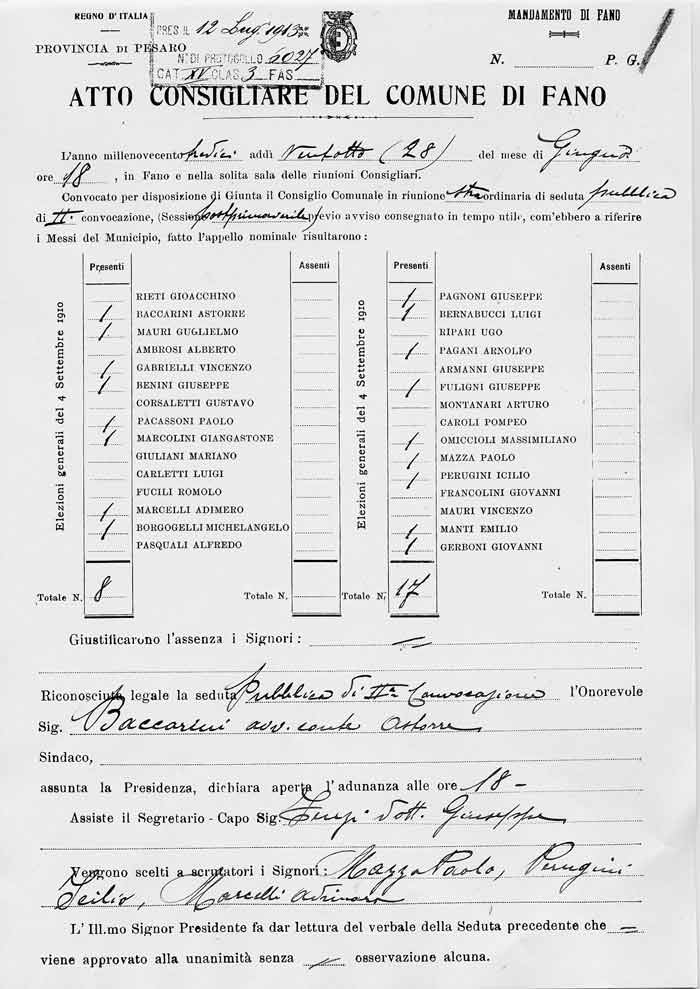 REGNO D'ITALIA
PROVINCIA DI PESARO
PRES. IL 12 Lug. 1913
N° DI PROTOCOLLO 6027
CAT. XV CLAS. 3 FAS
MANDAMENTO DI FANO
N. P. G.
ATTO CONSIGLIARE DEL COMUNE DI FANO
L'anno millenovecento tredici addì Ventotto (28) del mese di Giugno
ore 18, in Fano e nella solita sala delle riunioni Consigliari.
Convocato per disposizione di Giunta il Consiglio Comunale in riunione straordinaria di seduta pubblica
di IIª convocazione, (Sessione postprimaverile) previo avviso consegnato in tempo utile, com'ebbero a riferire
i Messi del Municipio, fatto l'appello nominale risultarono:
Presenti Assenti
Elezioni generali del 4 Settembre 1910
RIETI GIOACCHINO
1 BACCARINI ASTORRE
1 MAURI GUGLIELMO
AMBROSI ALBERTO
1 GABRIELLI VINCENZO
1 BENINI GIUSEPPE
CORSALETTI GUSTAVO
1 PACASSONI PAOLO
1 MARCOLINI GIANGASTONE
GIULIANI MARIANO
CARLETTI LUIGI
FUCILI ROMOLO
1 MARCELLI ADIMERO
1 BORGOGELLI MICHELANGELO
PASQUALI ALFREDO
Totale N. 8 Totale N.
Presenti Assenti
Elezioni generali del 4 Settembre 1910
1 PAGNONI GIUSEPPE
1 BERNABUCCI LUIGI
RIPARI UGO
1 PAGANI ARNOLFO
ARMANNI GIUSEPPE
1 FULIGNI GIUSEPPE
MONTANARI ARTURO
CAROLI POMPEO
1 OMICCIOLI MASSIMILIANO
1 MAZZA PAOLO
1 PERUGINI ICILIO
FRANCOLINI GIOVANNI
MAURI VINCENZO
1 MANTI EMILIO
1 GERBONI GIOVANNI
Totale N. 17 Totale N.
Giustificarono l'assenza i Signori: =
Riconosciuta legale la seduta Pubblica di IIª Convocazione l'Onorevole
Sig. Baccarini avv. conte Astorre
Sindaco,
assunta la Presidenza, dichiara aperta l'adunanza alle ore 18 -
Assiste il Segretario-Capo Sig. dott. Giuseppe
Vengono scelti a scrutatori i Signori: Mazza Paolo, Perugini
Icilio, Marcelli Adimaro
L'Ill.mo Signor Presidente fa dar lettura del verbale della Seduta precedente che =
viene approvato alla unanimità senza = osservazione alcuna.